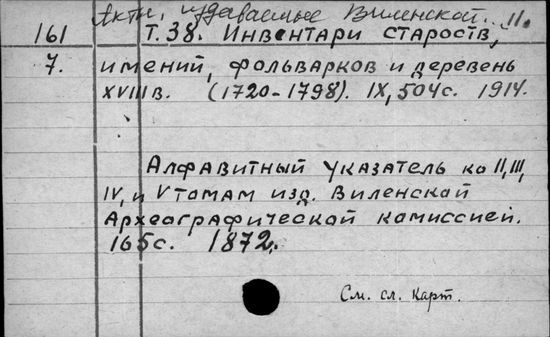 Акты, издаваемые Виленской.. 11.
161 Т. 38. Инвентари староств,
7. имений, фольварков и деревень
XVIII в. (1720-1798). IX, 504 с. 1914.
Алфавитный указатель ко II, III,
IV, и V томам изд. Виленской
Археографической комиссией.
165 с. 1872.
См. сл. карт.